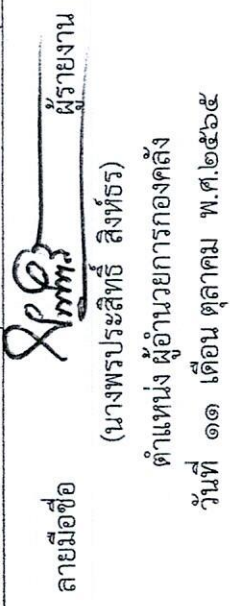 ลายมือชื่อ ผู้รายงาน
(นางพรประสิทธิ์ สิงห์ธร)
ตำแหน่ง ผู้อำนวยการกองคลัง
วันที่ ๑๑ เดือน ตุลาคม พ.ศ.๒๕๖๕